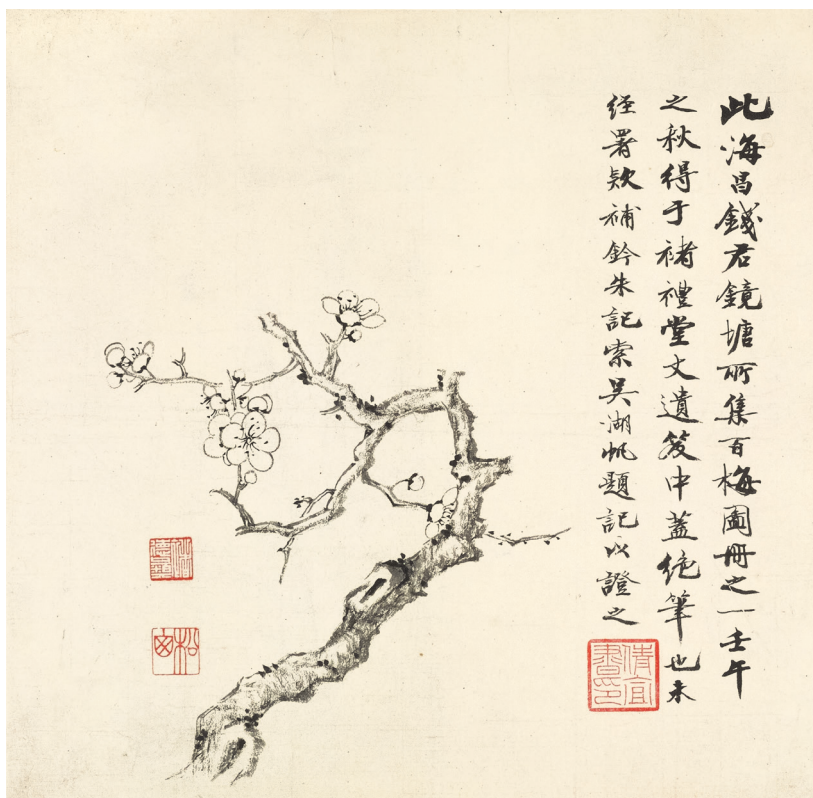 此海昌錢君鏡塘所集百梅圖冊之一壬午
之秋得于褚禮堂丈遺笈中蓋絕筆也未
經署欵補鈐朱記索吳湖帆題記以證之
倩宜書印
松窗